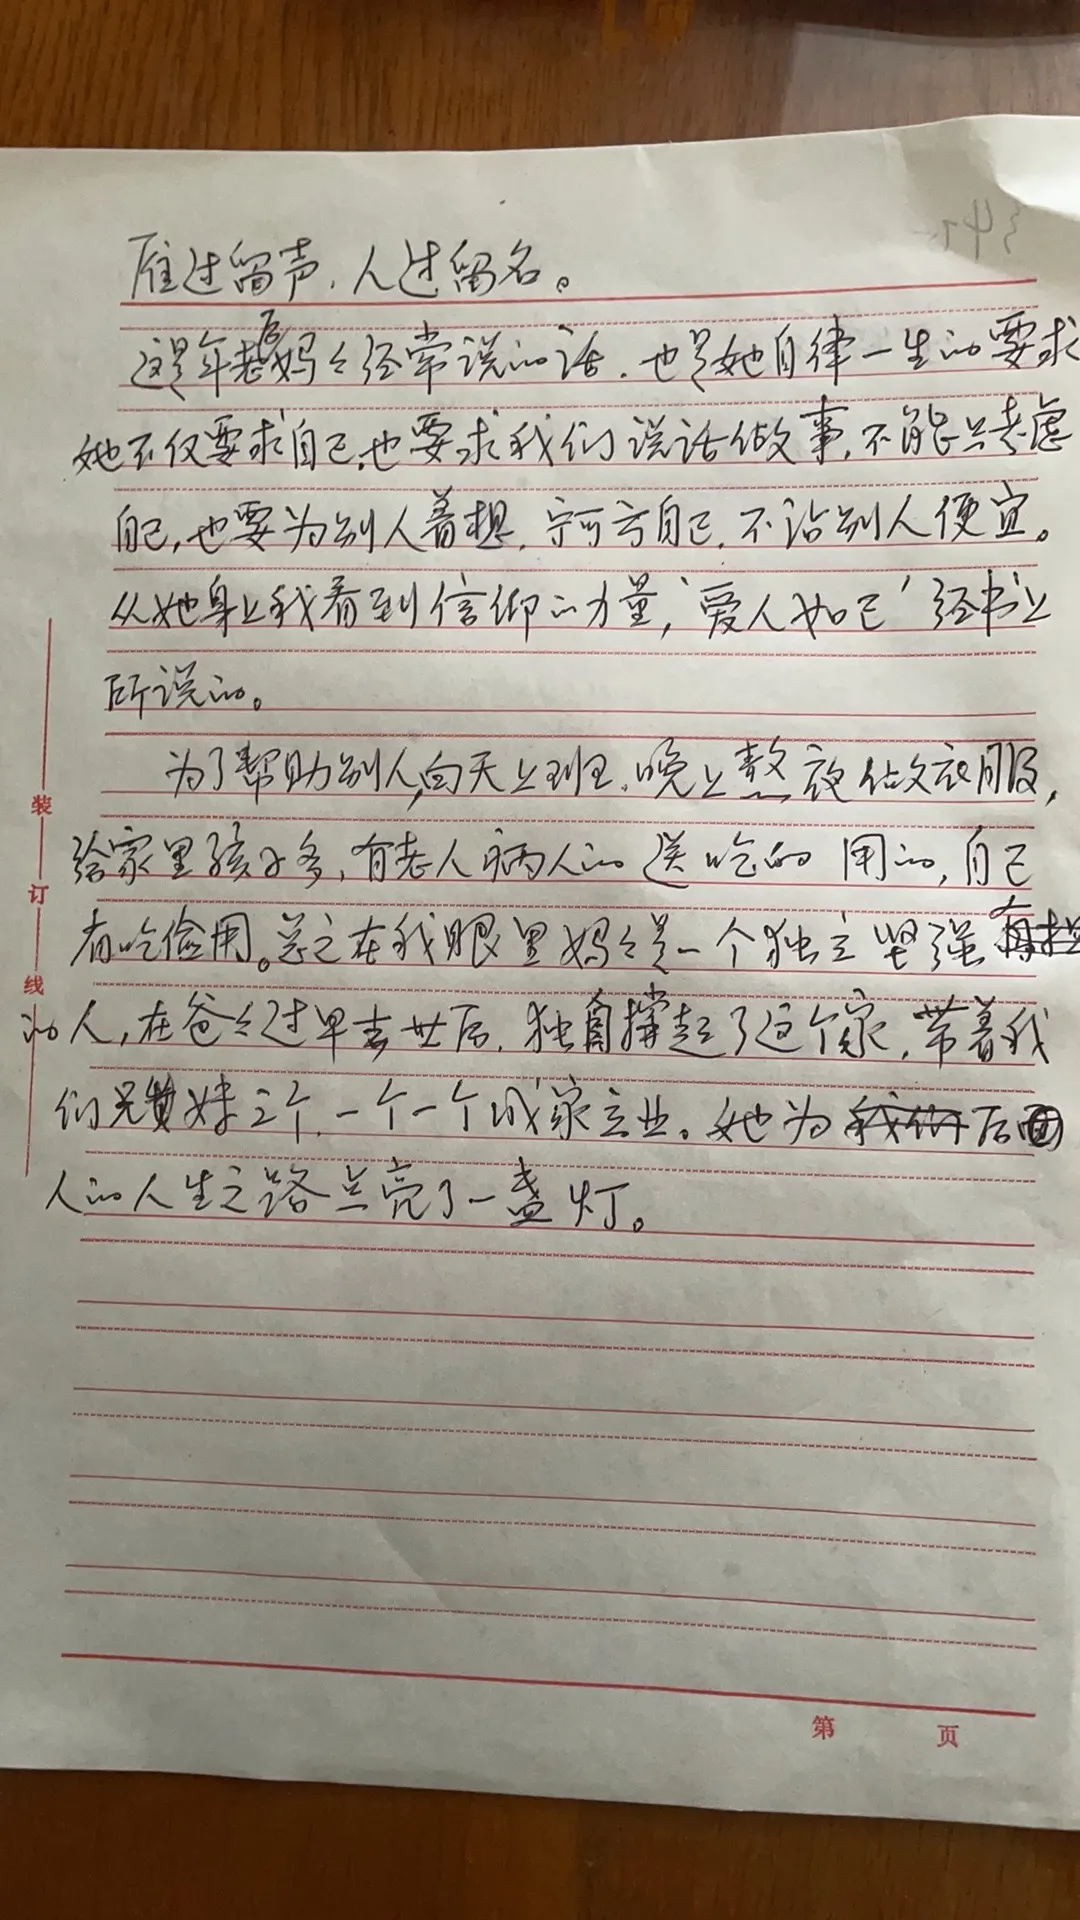 雁过留声，人过留名。
这是年老后妈々经常说的话，也是她自律一生的要求
她不仅要求自己，也要求我们说话做事，不能只考虑
自己，也要为别人着想，宁可亏自己，不沾别人便宜。
从她身上我看到信仰的力量，‘爱人如己’经书上
所说的。
为了帮助别人，白天上班，晚上熬夜做衣服，
给家里孩子多，有老人病人的送吃的 用的，自己
省吃俭用。总之在我眼里妈々是一个独立坚强有
的人，在爸々过早去世后，独自撑起了这个家，带着我
们兄妹三个，一个一个成家立业。她为后
人的人生之路点亮了一盏灯。
装
订
线
第 页